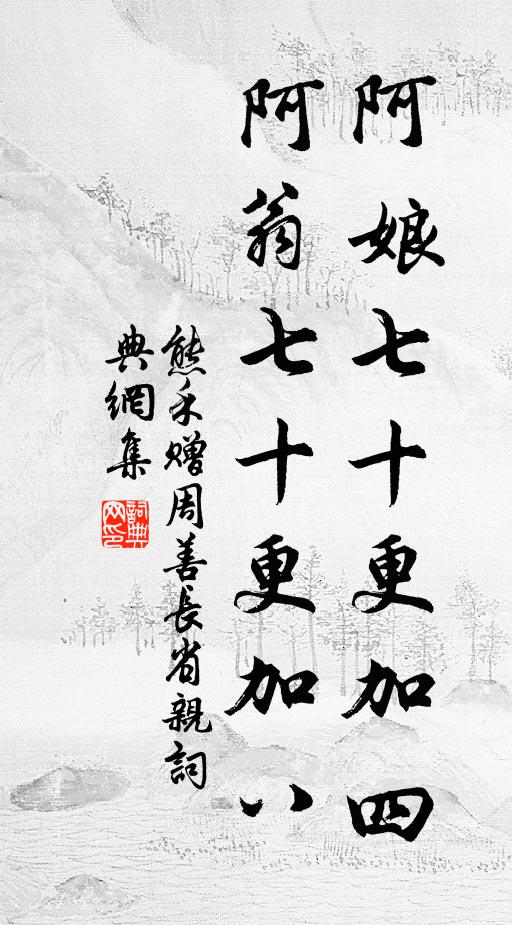 阿娘七十更加四
阿翁七十更加八
熊禾贈周善長省親詞
典網集
詞典网印